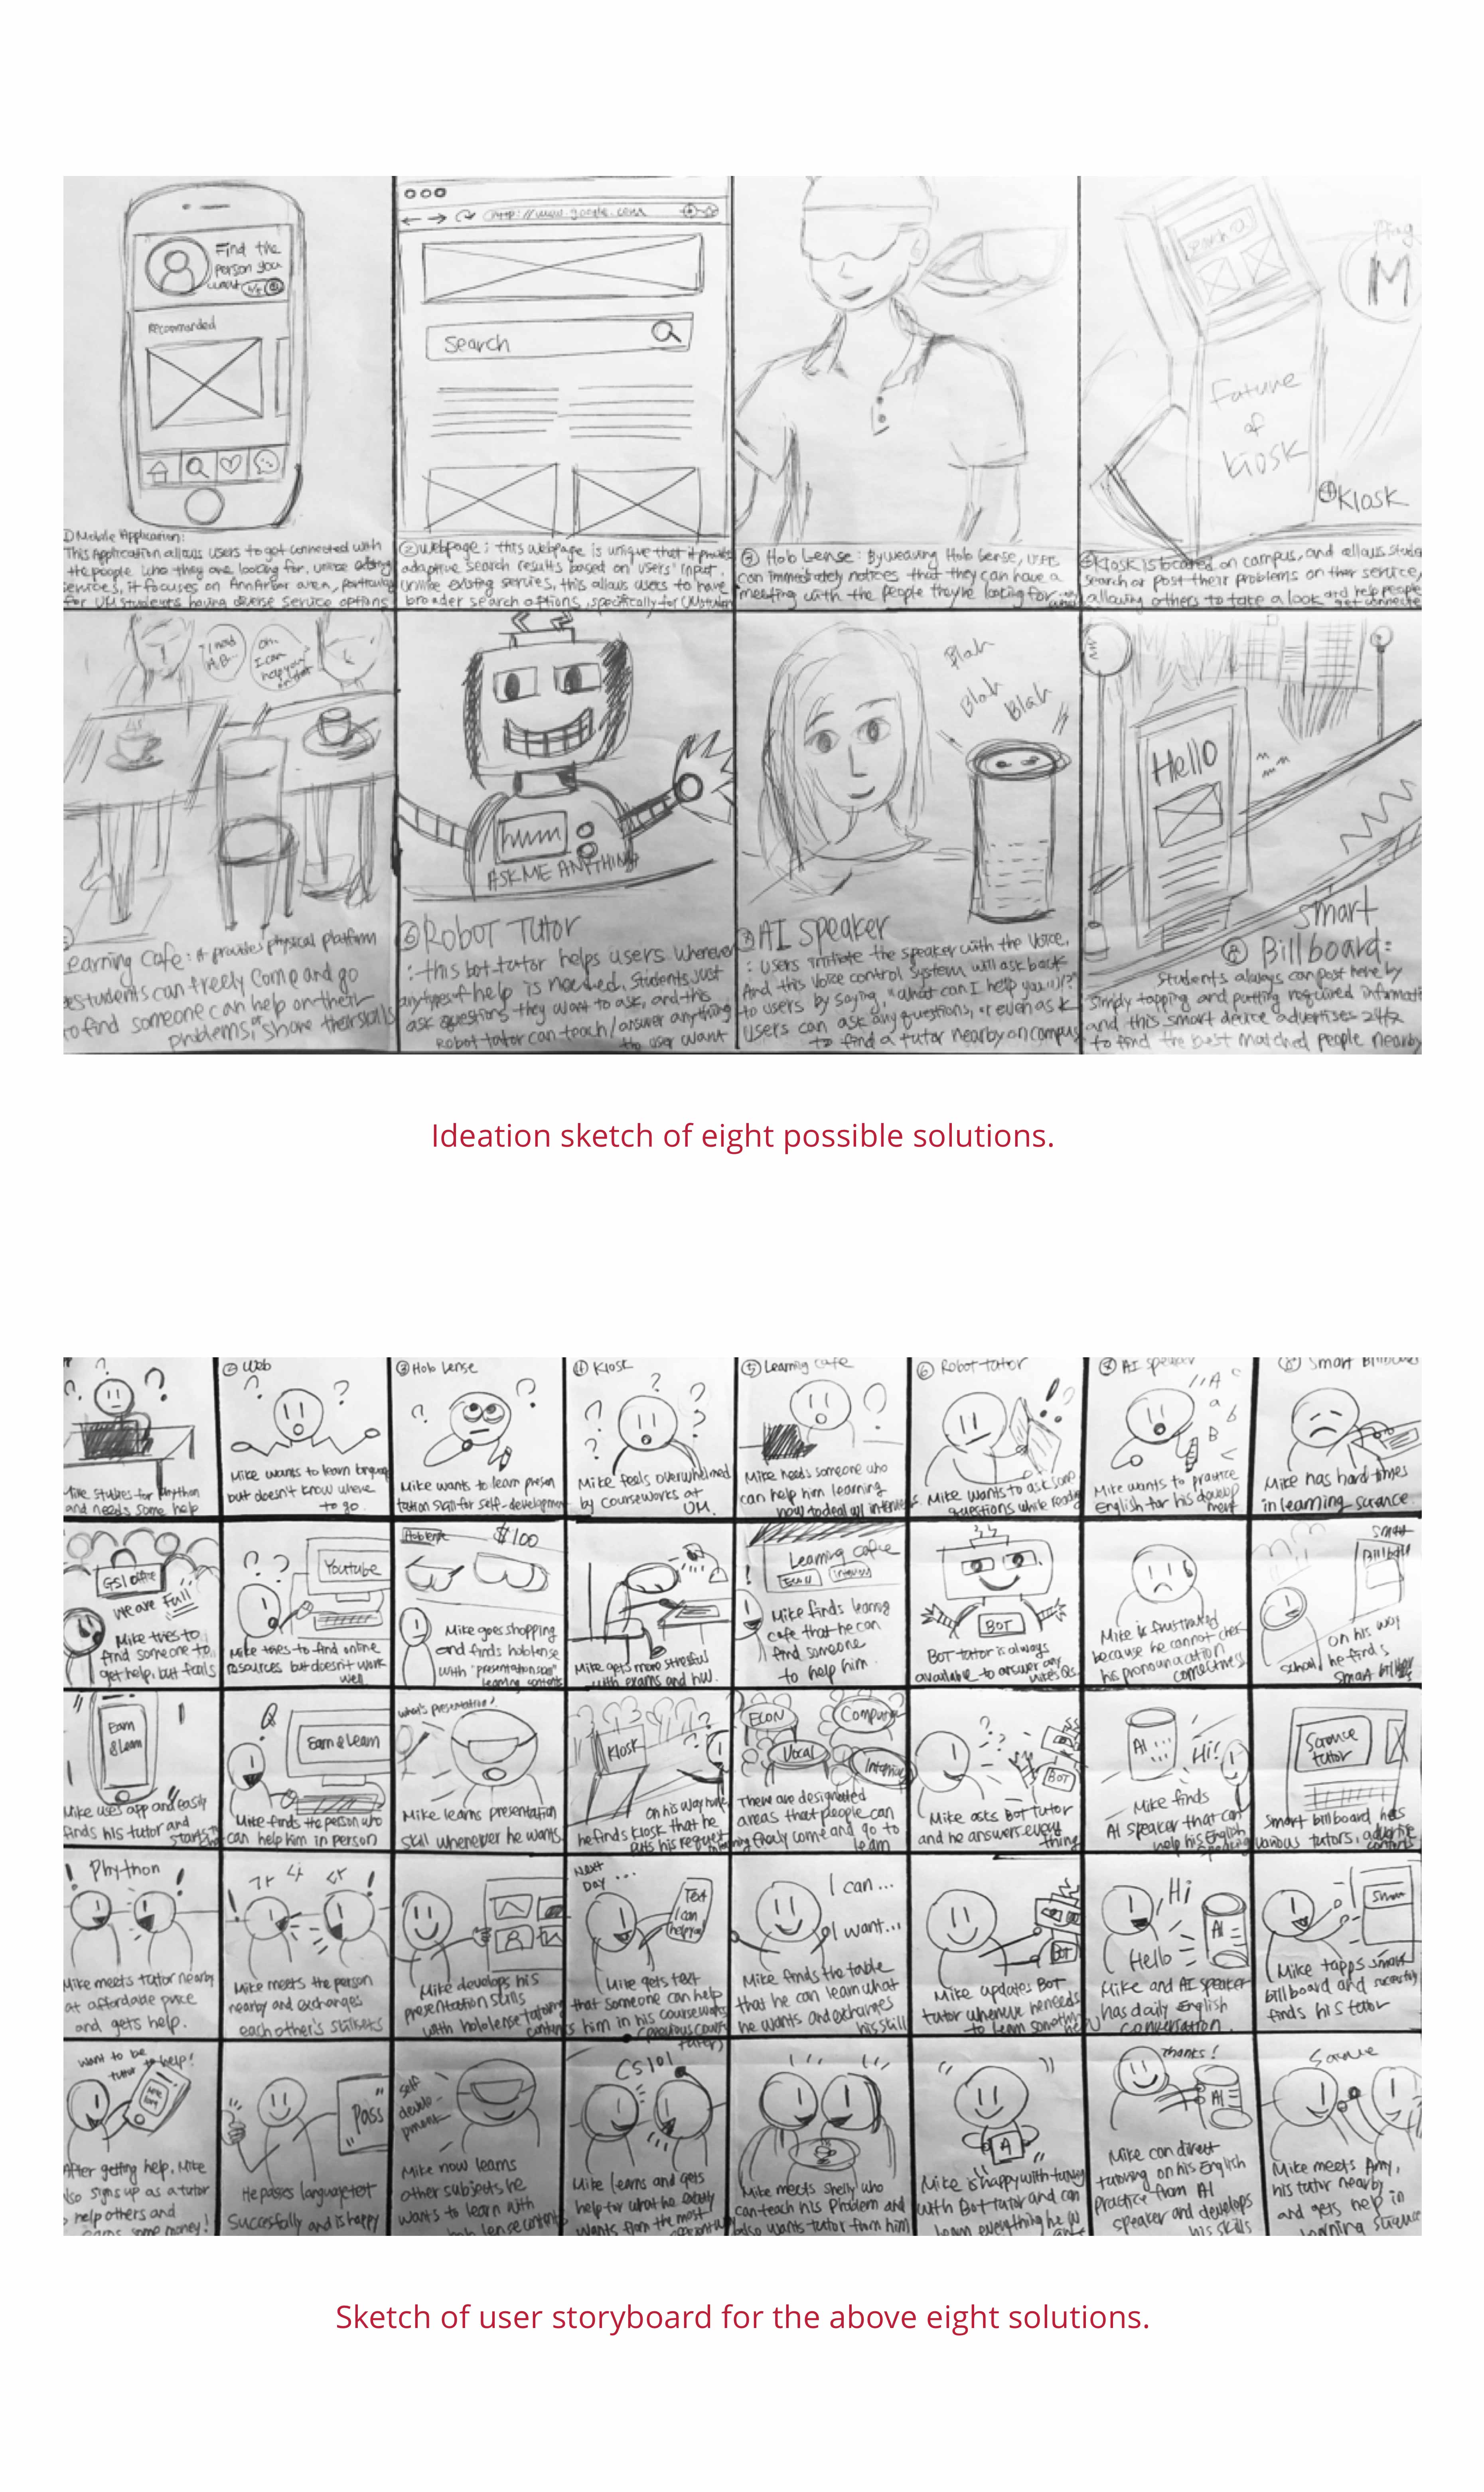 Find the
person you
want
Recommended
① Mobile Application:
This Application allows users to get connected with
the people who they are looking for. unlike
services, it focuses on AnnArbor area,
for UM students having diverse service options
http://www.google.com
Search
② Webpage : this webpage is unique that it
adaptive search results based on users' input.
Unlike existing services, this allows users to have
broader search options, specifically for
③ Holo Lense : By wearing Holo Lense, users
can immediately notices that they can have a
meeting with the people they're looking for
M
Future
of
kiosk
④ Kiosk
Kiosk is located on campus, and allows
search or post their problems on ther service,
allowing others to take a look and help people
get
I need
A, B
oh.
I can
help you
earning Cafe: it provides physical platform
students can freely come and go
to find someone can help on their
problems, or share their skills
hmm
ASK ME ANYTHING
⑥ Robot Tutor
: this bot-tutor helps users whenever
any types of help is needed. Students just
ask questions they want to ask, and this
Robot tutor can teach/answer anything
the user want
Blah
Blah
Blah
⑦ AI speaker
: Users initiate the speaker with the voice.
And this voice control system will ask back
to users by saying, "what can I help you w/?"
Users can ask any questions, or even ask
to find a tutor nearby on campus
Hello
smart
⑧ Billboard:
Students always can post here by
simply tapping and putting required
and this smart device advertises
to find the best matched people nearby
Ideation sketch of eight possible solutions.
② Web
③ Holo Lense
④ Kiosk
⑤ Learning cafe
⑥ Robot tutor
AI speaker
Smart
Mike studies for Phython
and needs some help
Mike wants to learn
but doesn't know where
to go
Mike wants to learn presen
tation skill for self-development
Mike feels overwhelmed
by courseworks at
UM.
Mike needs someone who
can help him learning
how to deal w/
Mike wants to ask some
questions while
A
a
b
B
Mike wants to practice
English for his develop
ment
Mike has hard times
in learning science.
GSI office
We are Full
Mike tries to
find someone to
get help, but fails
Youtube
Mike tries to find online
resources but doesn't work
well
$100
Mike goes shopping
and finds hololense
with "presentation
learning contents
Mike gets more stressful
with exams and HW.
Learning cafe
Econ
Mike finds learning
cafe that he can
find someone
to help him.
BOT
Bot tutor is always
available to answer any
Mike's Qs.
Mike is frustrated
because he cannot check
his pronunciation
correctness
smart
on his way
school, he finds
Smart
Earn
& Learn
Mike uses app and easily
finds his tutor and
Earn & Learn
Mike finds the person who
can help him in person
what's presentation?
Mike learns presentation
skill whenever he wants
KIOSK
on his way home
he finds kiosk that he
puts his request
ECON
Computer
Vocal
There are designated
areas that people can
freely come and go to
learn
BOT
Mike asks Bot tutor
and he answers every
thing
AI
Hi!
Mike finds
AI speaker that can
help his English
speaking
Science
tutor
Smart billboard has
various tutors,
Phython
Mike meets tutor nearby
at affordable price
and gets help.
Mike meets the person
nearby and exchanges
each other's skillsets
Mike develops his
presentation skills
with hololense
Next
Day ...
Text
I can
help you
Mike gets text
that someone can help
him in his coursework
I can...
I want...
Mike finds the table
that he can learn what
he wants and exchanges
his skill
Bot
Mike updates Bot
tutor whenever he needs
to learn
Hi
Hello
AI
Mike and AI speaker
has daily English
conversation
Mike tapps smart
billboard and successfully
finds his tutor
want to be
tutor to help!
After getting help, Mike
also signs up as a tutor
help others and
some money!
"Pass"
He passes language test
Successfully and is happy
self
develo-
pment
Mike now learns
other subjects he
wants to learn with
CS101
Mike learns and gets
help for what he exactly
wants from the most
Mike meets Shelly who
can teach his problem and
also wants tutor from him
A
Mike is happy with
with Bot tutor and can
learn everything he
Thanks!
AI
Mike can direct
tutoring on his English
practice from AI
speaker and develops
his skills
Mike meets Amy,
his tutor nearby
and gets help in
learning science
Sketch of user storyboard for the above eight solutions.